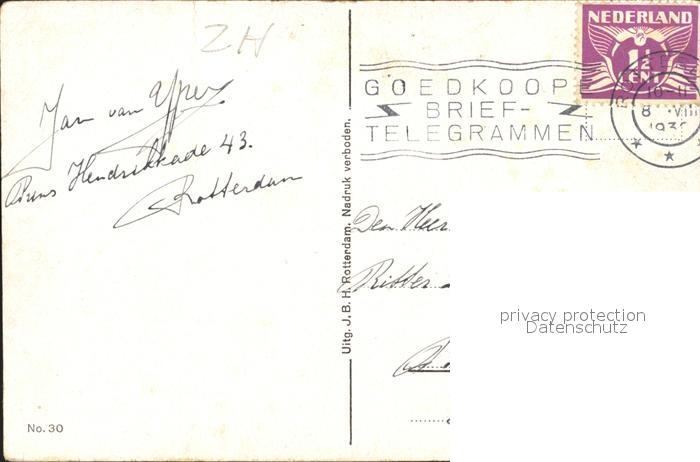 ZH
Jan van Yper
Prins Hendrikkade 43.
Rotterdam
No. 30
Uitg. J. B. H. Rotterdam. Nadruk verboden.
NEDERLAND
1½
CENT
GOEDKOOP
BRIEF-
TELEGRAMMEN
10-11
8 VIII
193
Den Heer
Ritter
privacy protection
Datenschutz